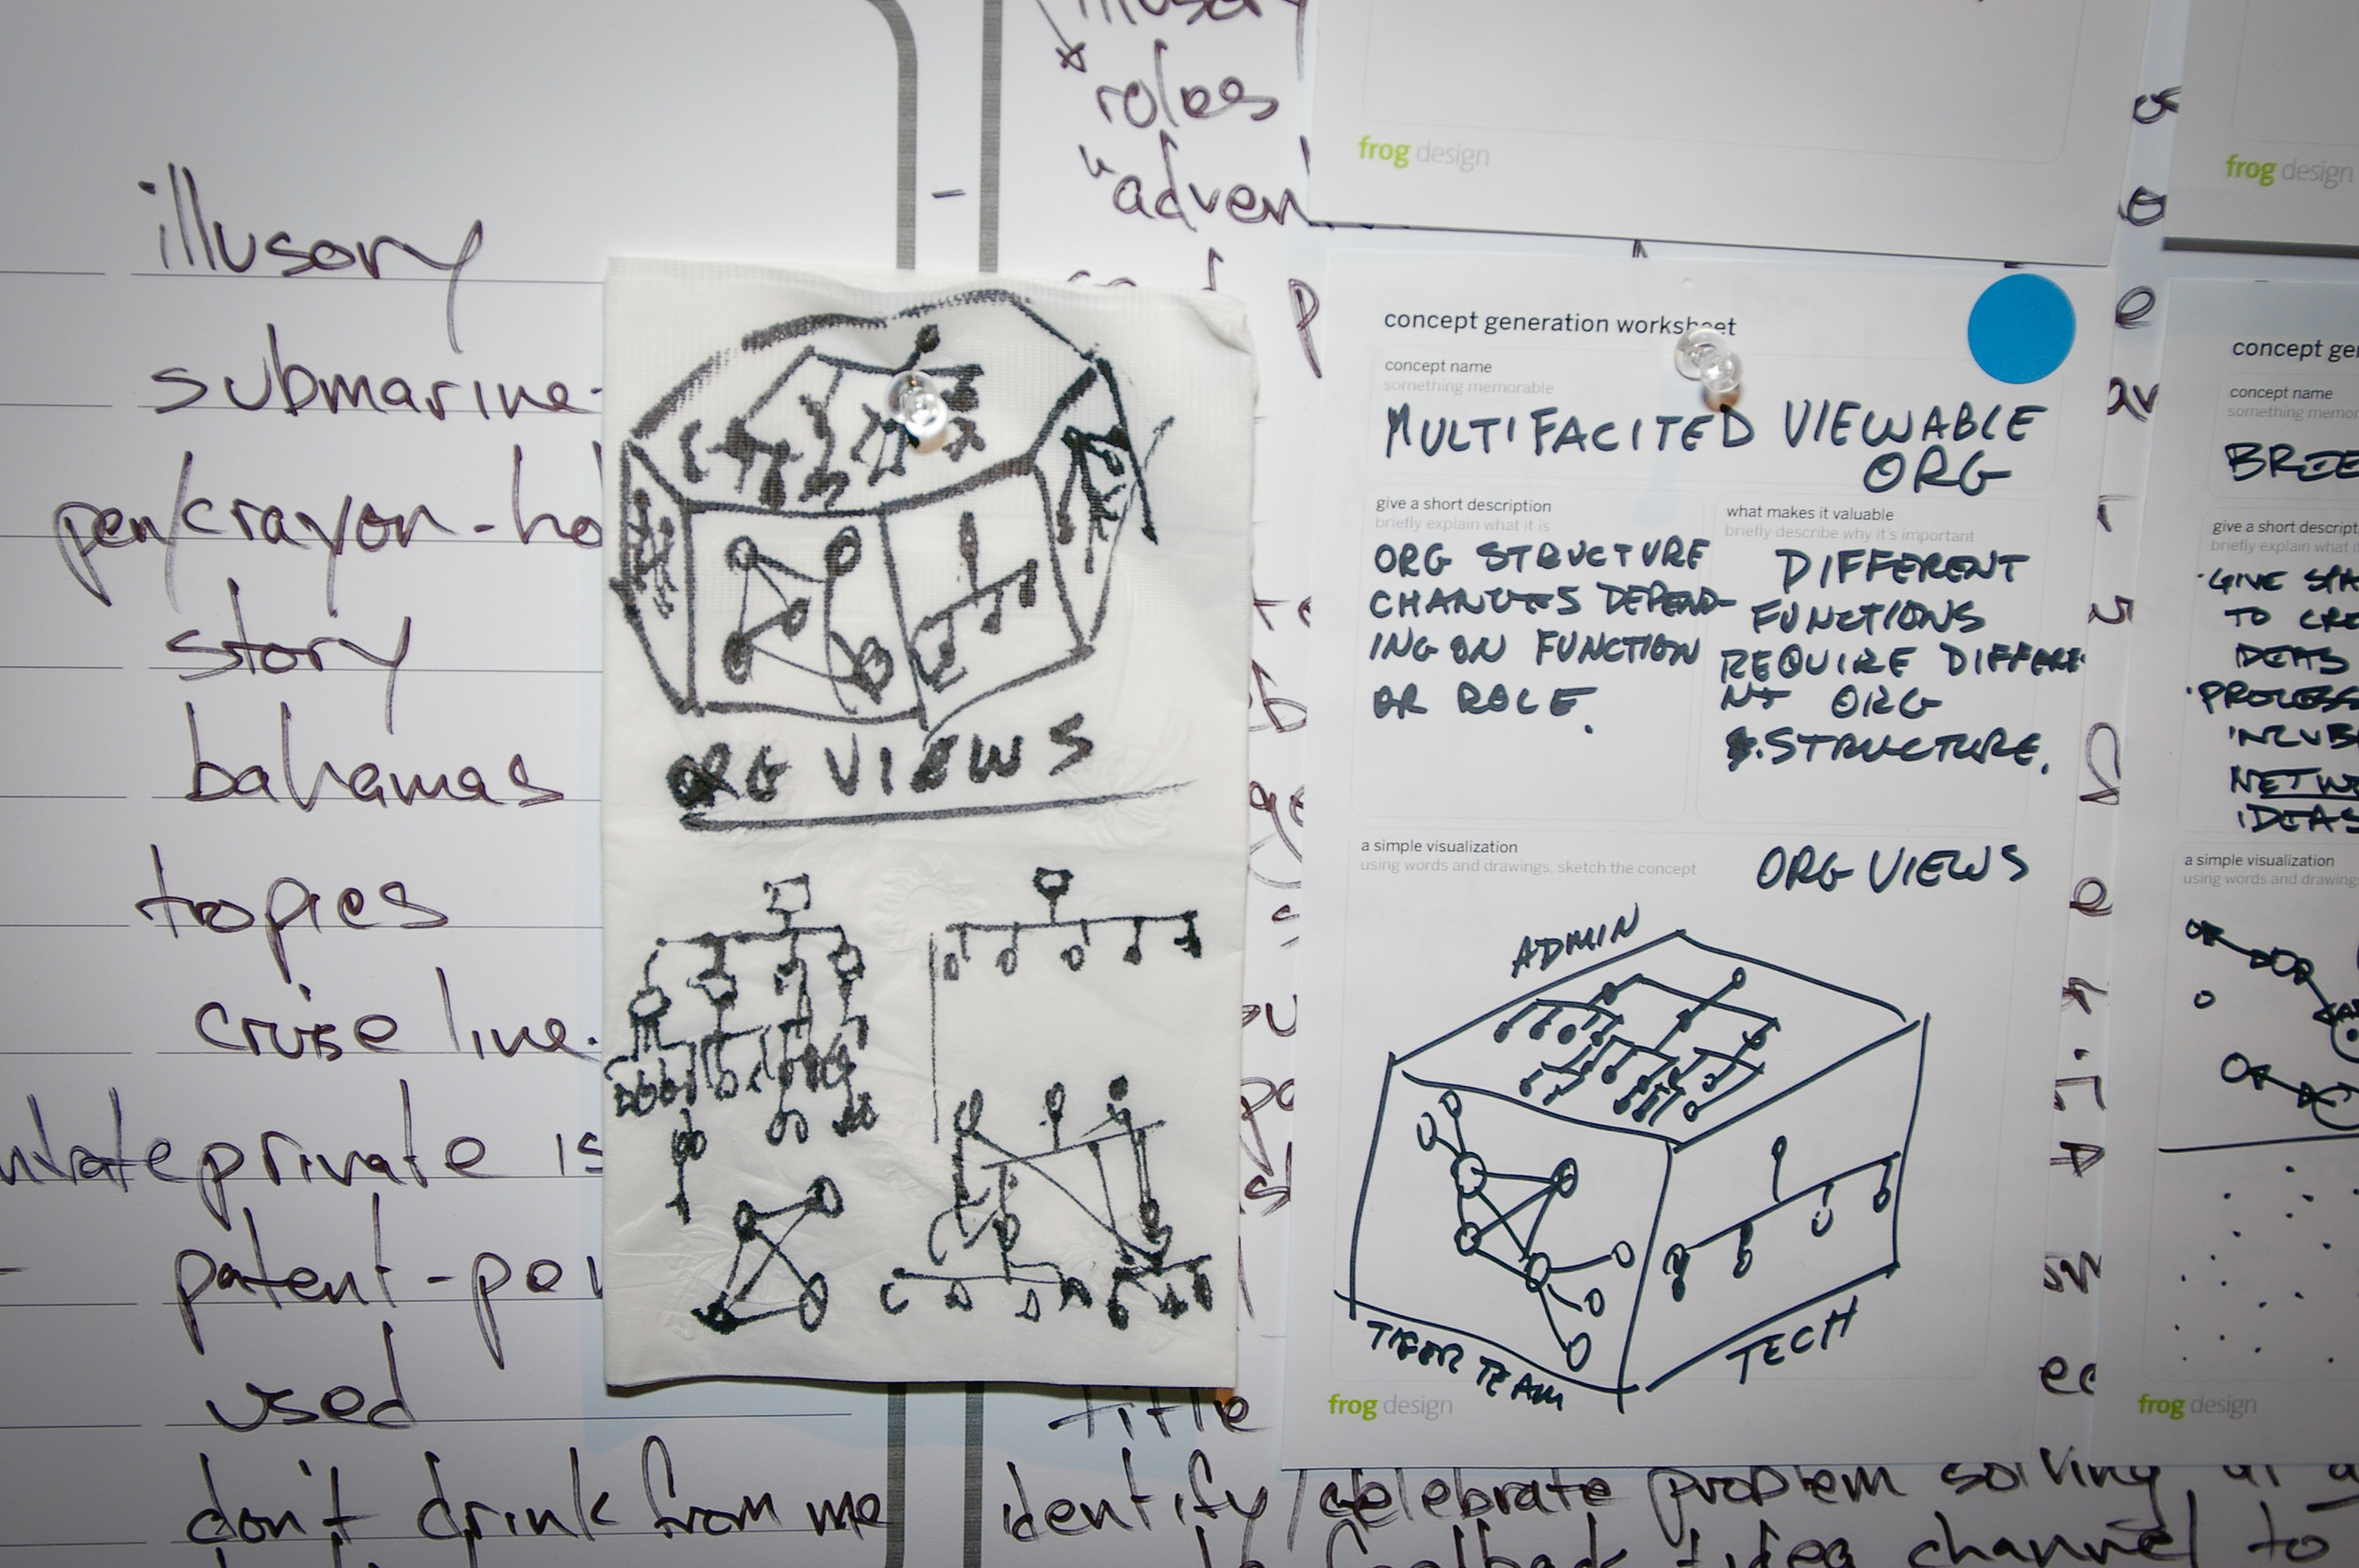 illusory
submarine-
pen/crayon-ho
story
bahamas
tropics
cruise line.
private is
patent-po
used
don't drink from me
roles
"adven
title
identify/celebrate problem solving
idea channel to
ORG VIEWS
frog design
concept generation worksheet
concept name
something memorable
MULTIFACITED VIEWABLE
ORG
give a short description
briefly explain what it is
ORG STRUCTURE
CHANGES DEPEND-
ING ON FUNCTION
OR ROLE.
what makes it valuable
briefly describe why it's important
DIFFERENT
FUNCTIONS
REQUIRE DIFFERE
NT ORG
STRUCTURE.
a simple visualization
using words and drawings, sketch the concept
ORG VIEWS
ADMIN
TIGER TEAM
TECH
frog design
frog design
concept ge
concept name
something memor
BREE
give a short descript
briefly explain what it
GIVE SPA
TO CRE
IDEAS
PROCESS
INCUB
NETW
IDEAS
a simple visualization
using words and drawing
frog design